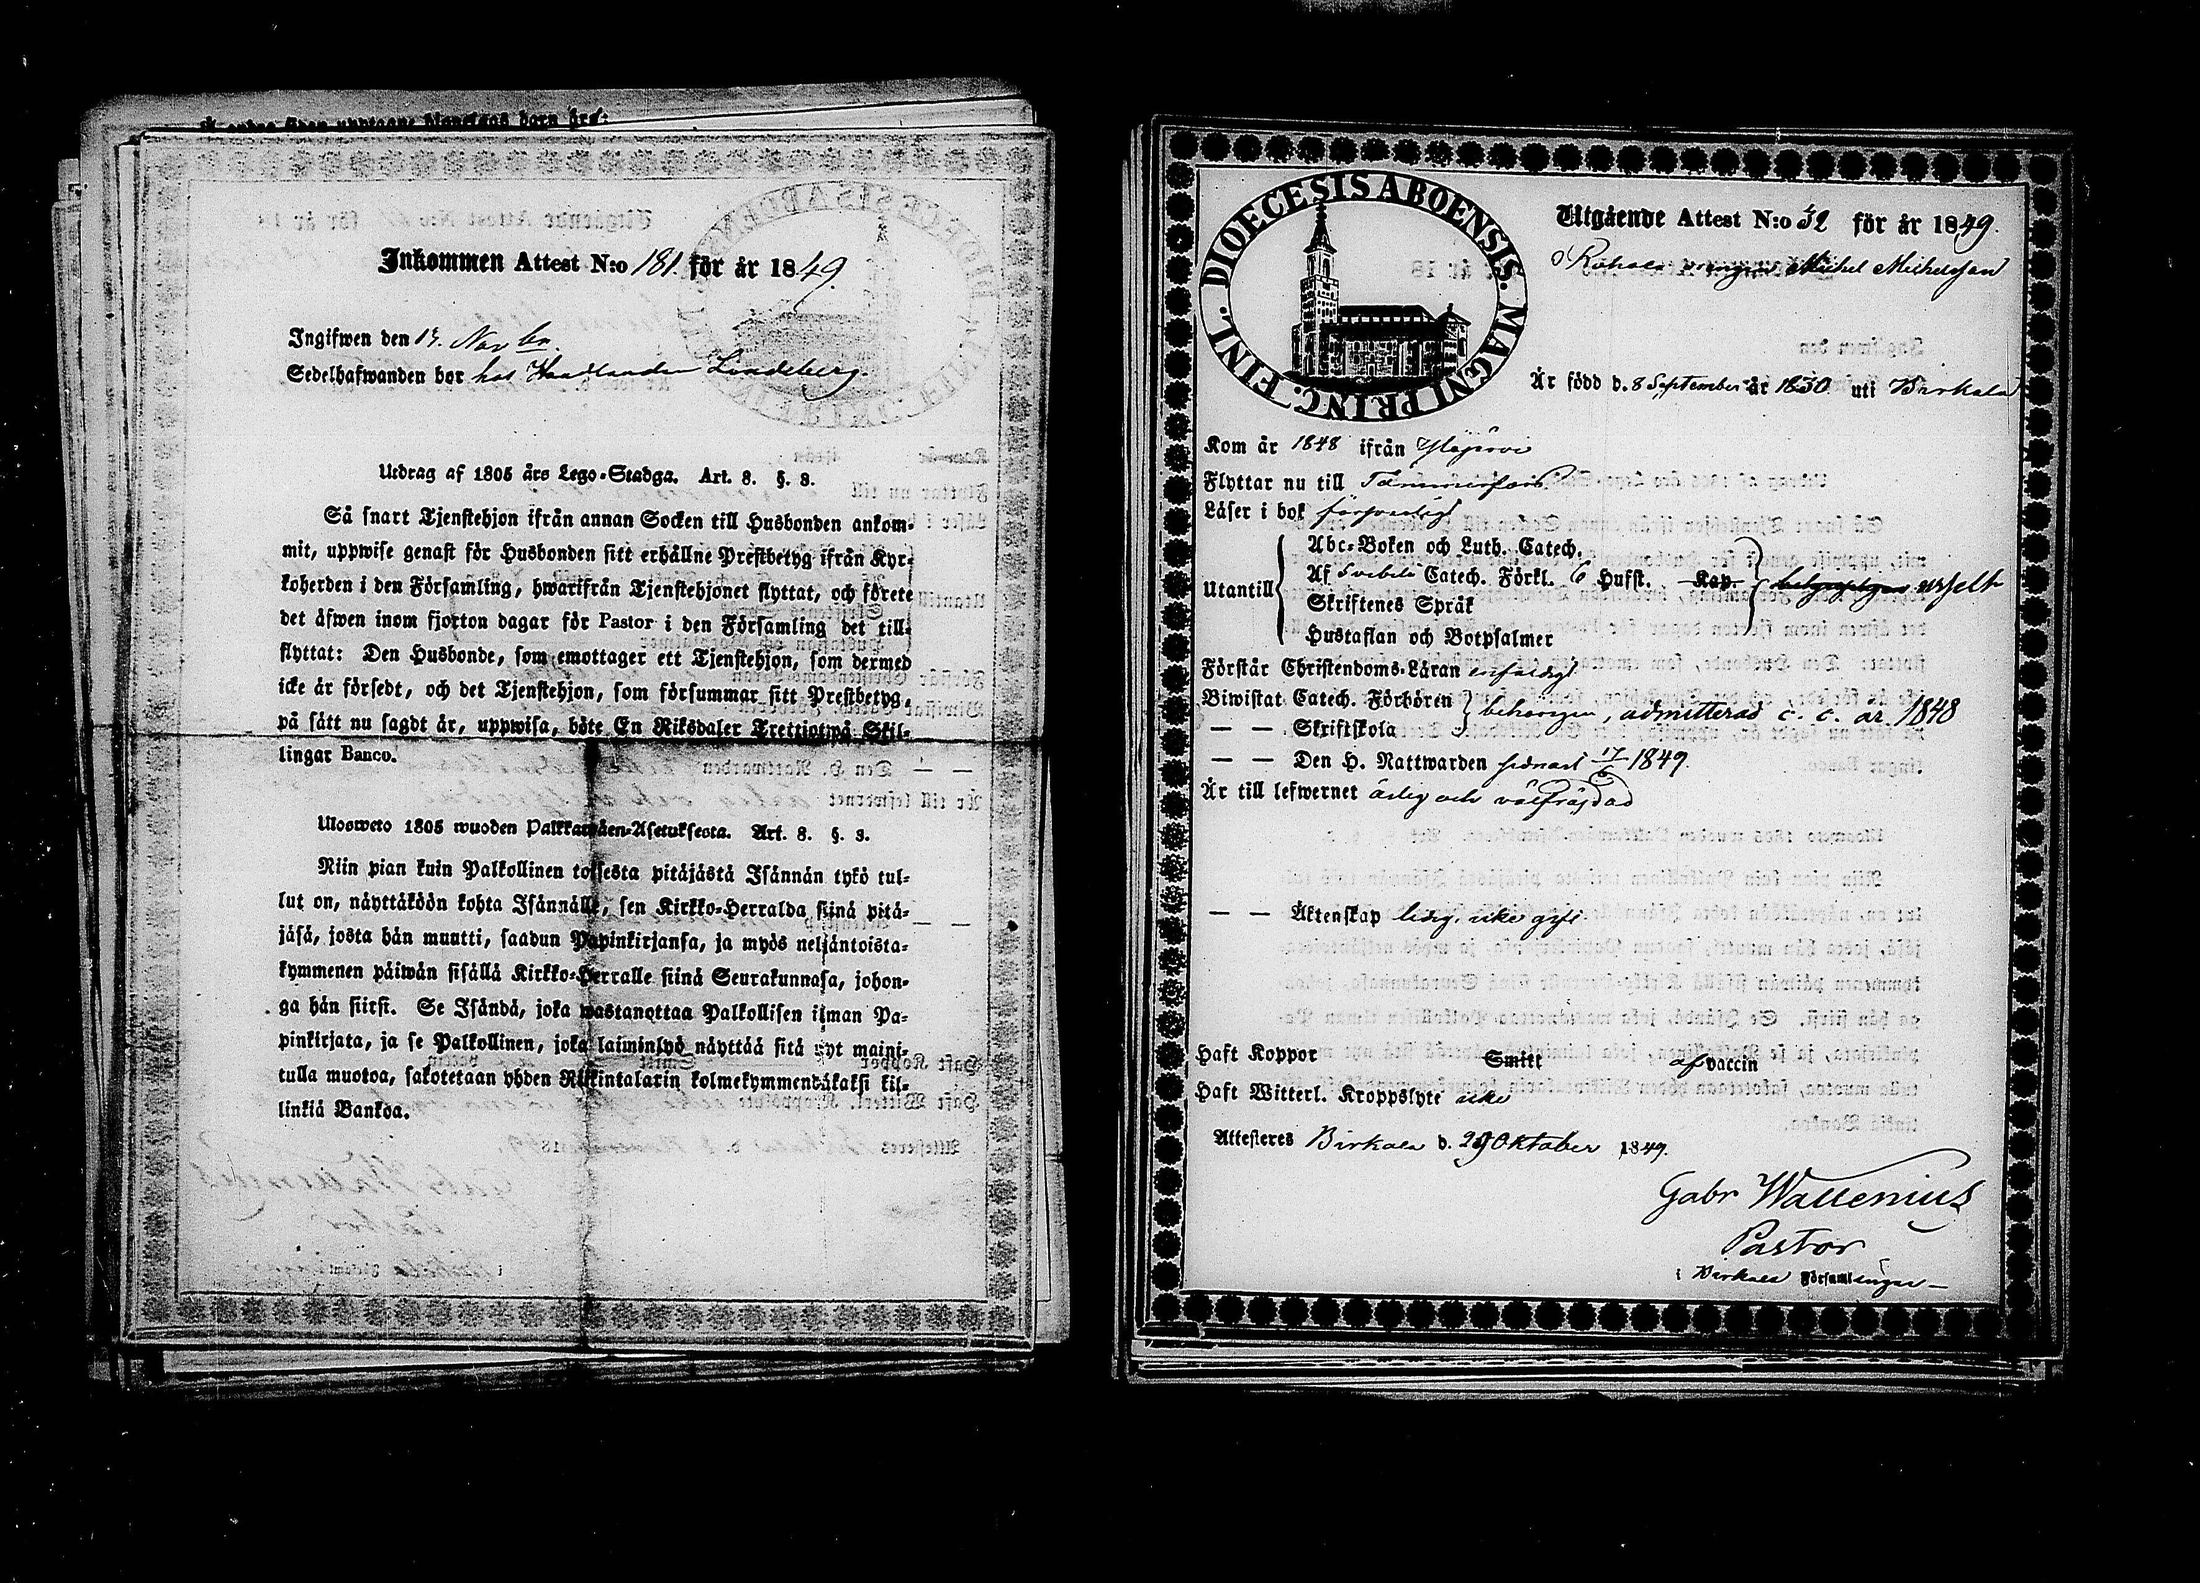 Inkommen Attest N:o 181. för år 1849.
Ingifwen den 14. Novbr.
Sedelhafwanden bor hos Handlanden Lindeberg.
Utdrag af 1805 års Lego-Stadga. Art. 8. §. 8.
Så snart Tjenstehjon ifrån annan Socken till Husbonden ankom-
mit, uppwise genast för Husbonden sitt erhållne Prestbetyg ifrån Kyr-
koherden i den Församling, hwarifrån Tjenstehjonet flyttat, och förete
det äfwen inom fjorton dagar för Pastor i den Församling det till-
flyttat: Den Husbonde, som emottager ett Tjenstehjon, som dermed
icke är försedt, och det Tjenstehjon, som försummar sitt Prestbetyg,
på sätt nu sagdt är, uppwisa, böte En Riksdaler Trettiotwå Skil-
lingar Banco.
Ulosweto 1805 wuoden Palkkawäen-Asetuksesta. Art. 8. §. 8.
Niin pian kuin Palkollinen toisesta pitäjästä Isännän tykö tul-
lut on, näyttäköön kohta Isännälle, sen Kirkko-Herralda siinä pitä-
jäsä, josta hän muutti, saadun Papinkirjansa, ja myös neljäntoista-
kymmenen päiwän sisällä Kirkko-Herralle siinä Seurakunnasa, johon-
ga hän siirsi. Se Isändä, joka wastanottaa Palkollisen ilman Pa-
pinkirjata, ja se Palkollinen, joka laiminlyö näyttää sitä nyt maini-
tulla muotoa, sakotetaan yhden Riikintalarin kolmekymmendäkaksi kil-
linkiä Bankoa.
DIOECESIS ABOENSIS. MAGNI PRINC. FINL.
Utgående Attest N:o 52 för år 1849.
Drengen Michel Michelsson
Är född d. 8 September år 1830 uti Birkala
Kom år 1848 ifrån Ylöjärvi
Flyttar nu till Tammerfors
Läser i bok försvarligt
Utantill
Abc-Boken och Luth. Catech.
Af Svebeli Catech. Förkl. 6 Hufst. Kap.
Skriftenes Språk
Hustaflan och Botpsalmer
Förstår Christendoms-Läran enfaldigt
Biwistat Catech. Förhören
— — Skriftskola
behörigen, admitterad c. c. år. 1848
— — Den H. Nattwarden sednast 17/6 1849.
Är till lefwernet ärlig och välfräjdad
— — Äktenskap ledig, icke gift
Haft Koppor Smitt af vaccin
Haft Witterl. Kroppslyte icke
Attesteres Birkala d. 29 Oktober 1849.
Gabr Wallenius
Pastor
i Birkala Församlingar —